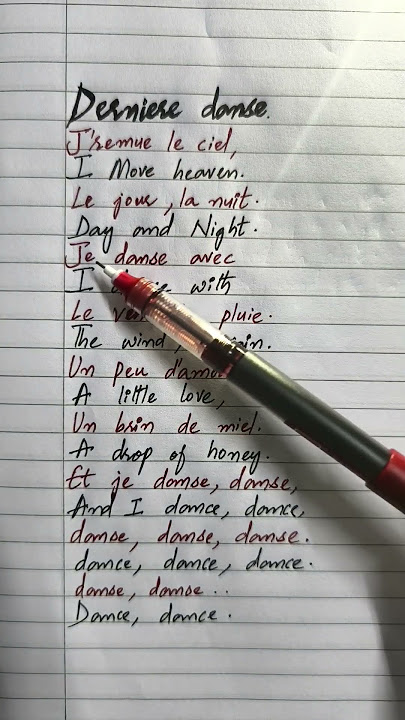 Derniere danse.
J'remue le ciel,
I Move heaven.
Le jour, la nuit.
Day and Night.
Je danse avec
I with
Le pluie.
The wind,
Un peu
A little love,
Un brin de miel.
A drop of honey.
Et je danse, danse,
And I dance, dance,
danse, danse, danse.
dance, dance, dance.
danse, danse ..
Dance, dance.